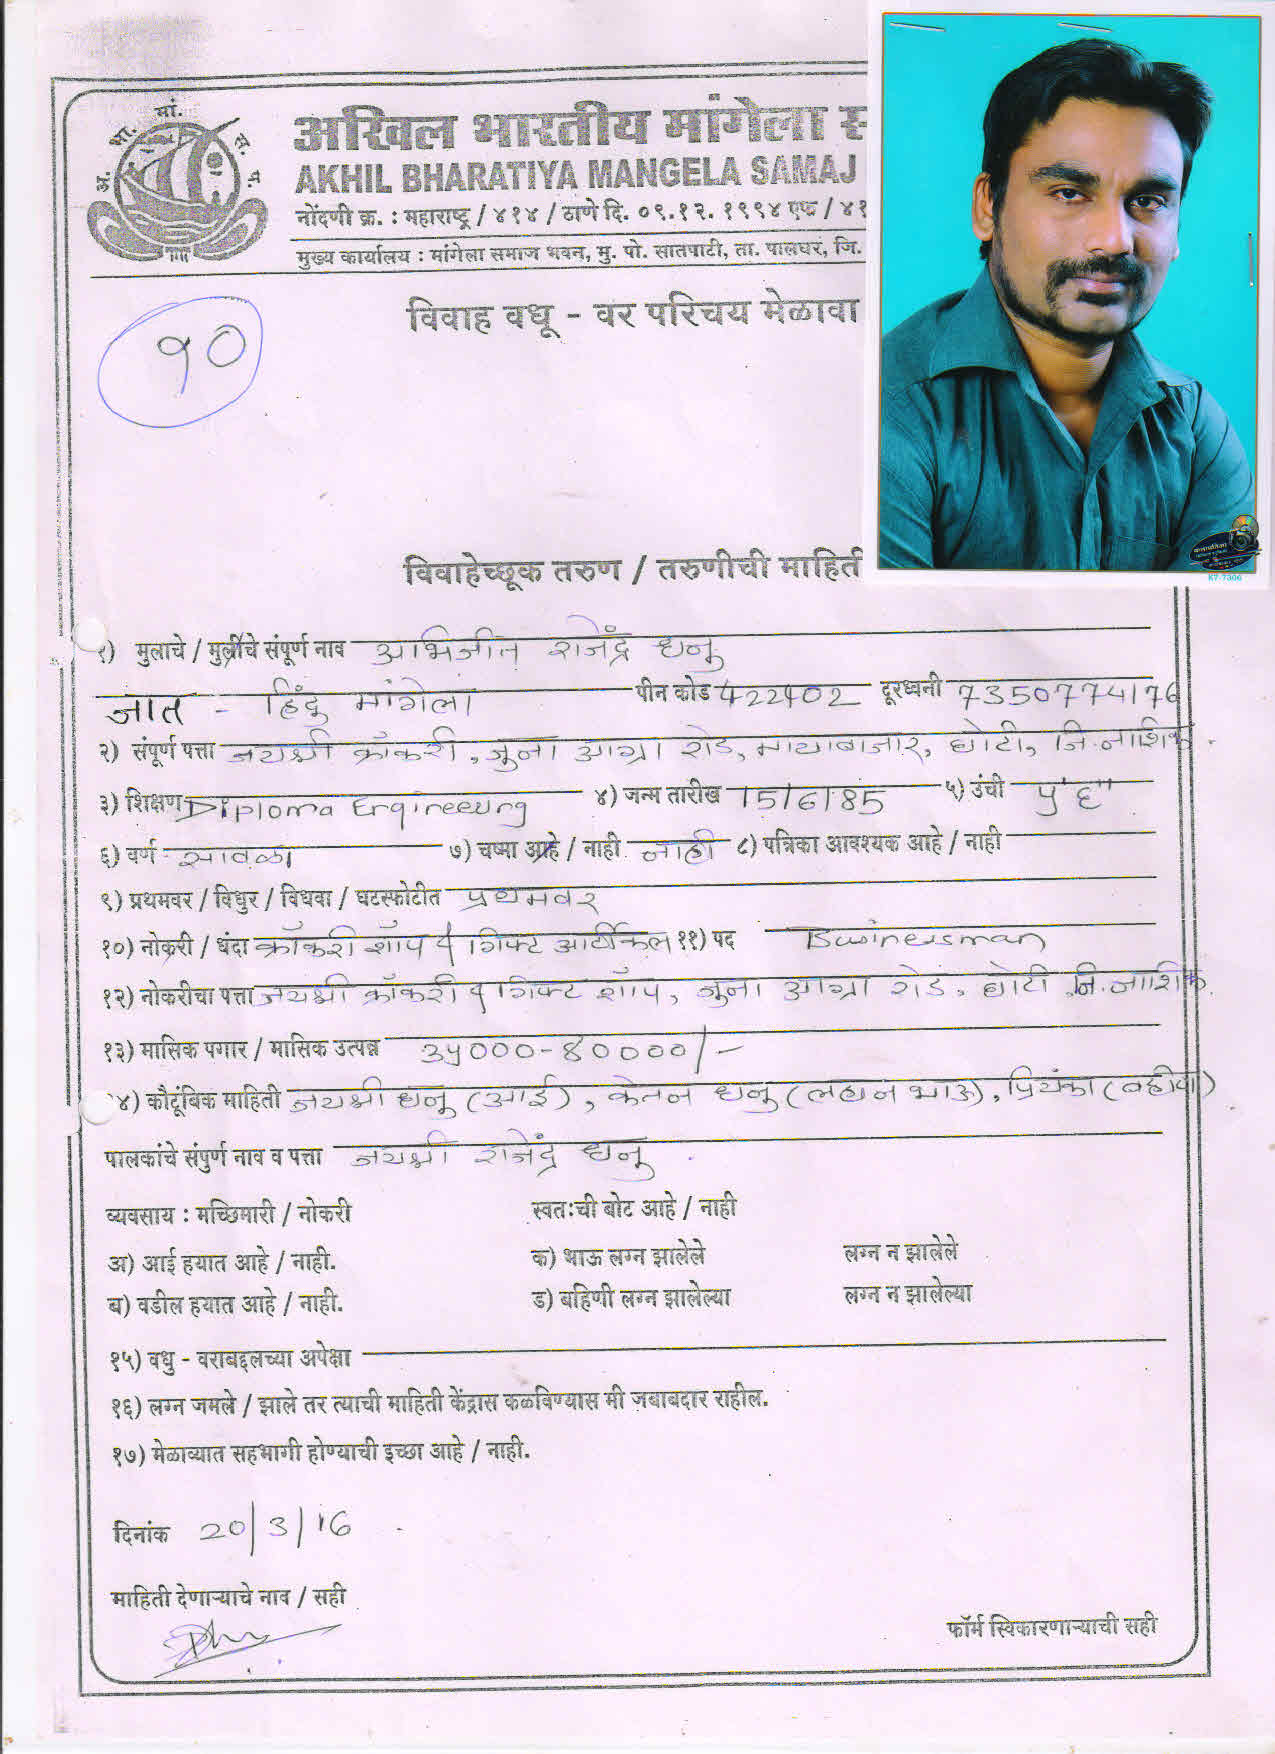 अ. भा. मां. स. प.
अखिल भारतीय मांगेला स
AKHIL BHARATIYA MANGELA SAMAJ
नोंदणी क्र. : महाराष्ट्र / ४१४ / ठाणे दि. ०९.१२. १९९४ एफ / ४१
मुख्य कार्यालय : मांगेला समाज भवन, मु. पो. सातपाटी, ता. पालघर, जि.
१०
विवाह वधू - वर परिचय मेळावा
K7-7306
विवाहेच्छूक तरुण / तरुणीची माहिती
१) मुलाचे / मुलींचे संपूर्ण नाव अभिजीत राजेंद्र धनु
जात - हिंदु मांगेला पीन कोड 422402 दूरध्वनी 7350774176
२) संपूर्ण पत्ता जयश्री क्रॉकरी, जुना आग्रा रोड, मायाबाजार, घोटी, जि. नाशिक.
३) शिक्षण Diploma Engineering ४) जन्म तारीख 15/6/85 ५) उंची ५' ६"
६) वर्ण सावळा ७) चष्मा आहे / नाही नाही ८) पत्रिका आवश्यक आहे / नाही
९) प्रथमवर / विधुर / विधवा / घटस्फोटीत प्रथमवर
१०) नोकरी / धंदा क्रॉकरी शॉप & गिफ्ट आर्टीकल ११) पद Businessman
१२) नोकरीचा पत्ता जयश्री क्रॉकरी & गिफ्ट शॉप, जुना आग्रा रोड, घोटी, जि. नाशिक.
१३) मासिक पगार / मासिक उत्पन्न ३५०००-४००००/-
४) कौटूंबिक माहिती जयश्री धनु (आई), केतन धनु (लहान भाऊ), प्रियंका (वहीनी)
पालकांचे संपुर्ण नाव व पत्ता जयश्री राजेंद्र धनु.
व्यवसाय : मच्छिमारी / नोकरी स्वतःची बोट आहे / नाही
अ) आई हयात आहे / नाही. क) भाऊ लग्न झालेले लग्न न झालेले
ब) वडील हयात आहे / नाही. ड) बहिणी लग्न झालेल्या लग्न न झालेल्या
१५) वधु - वराबद्दलच्या अपेक्षा
१६) लग्न जमले / झाले तर त्याची माहिती केंद्रास कळविण्यास मी जबाबदार राहील.
१७) मेळाव्यात सहभागी होण्याची इच्छा आहे / नाही.
दिनांक 20/3/16
माहिती देणाऱ्याचे नाव / सही
फॉर्म स्विकारणाऱ्याची सही